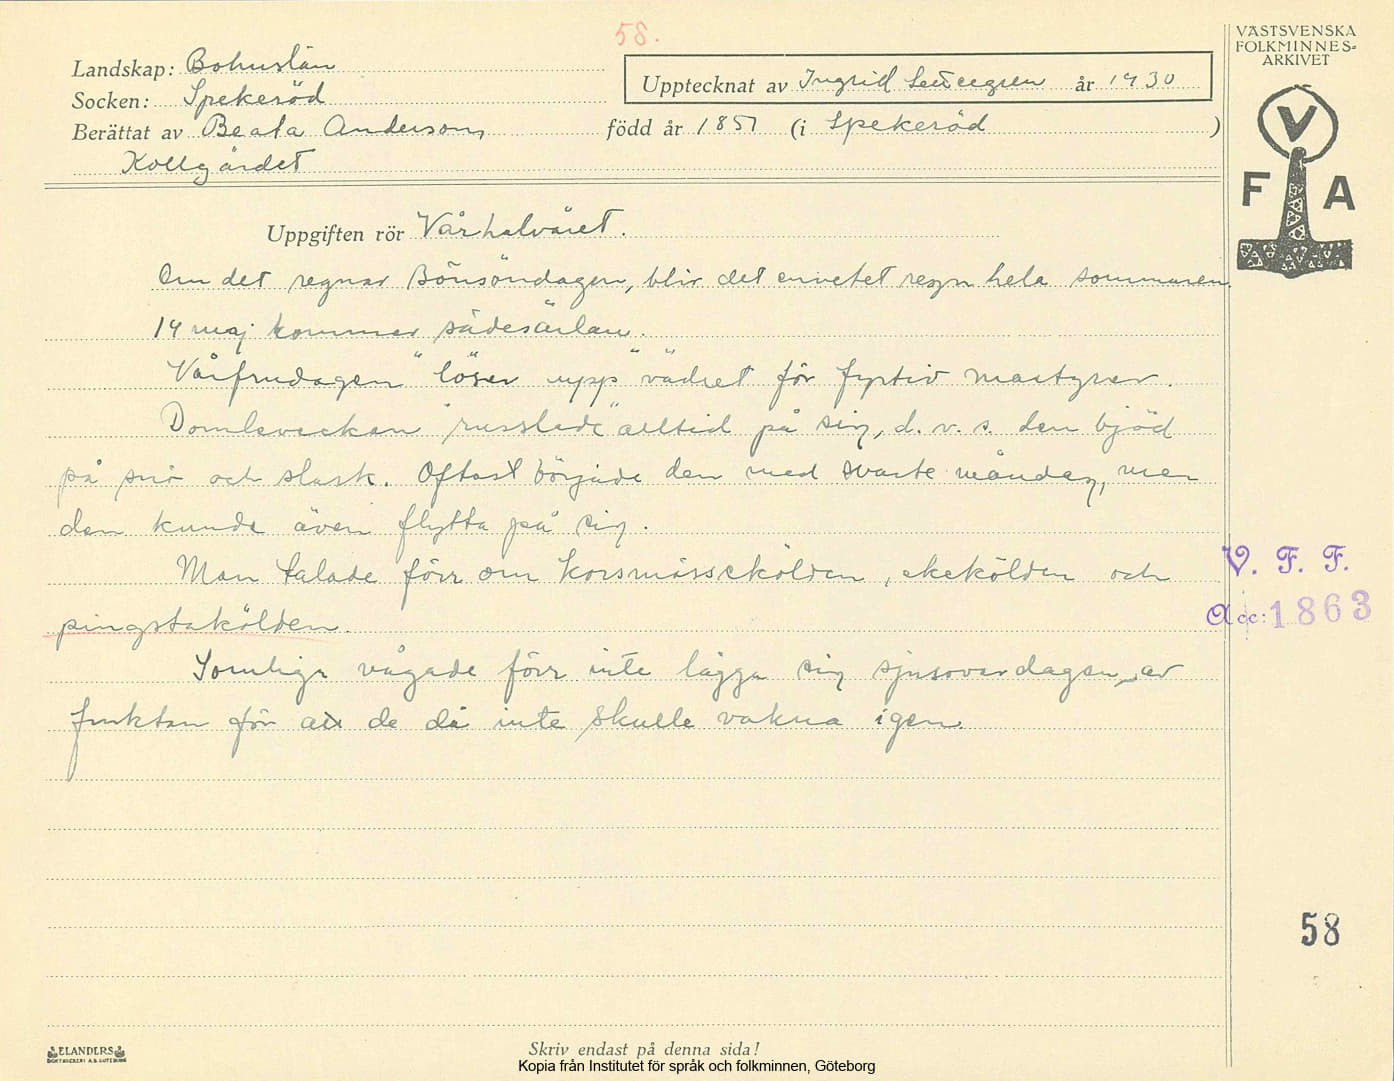 58.
VÄSTSVENSKA
FOLKMINNES-
ARKIVET
Landskap: Bohuslän
Upptecknat av Ingrid år 1930
Socken: Spekeröd
Berättat av Beata Anderson, född år 1851 (i Spekeröd )
Kollgärdet
V
F A
Uppgiften rör Vårhalvåret.
Om det regnar Bönsöndagen, blir det envetet regn hela sommaren.
14 maj kommer sädesärlan.
Vårfrudagen "löser upp" vädret för fyrtio martyrer.
Domleveckan "russlade" alltid på sig, d. v. s. den bjöd
på snö och slask. Oftast började den med svarte måndag, men
den kunde även flytta på sig.
Man talade förr om korsmässekölden, ekekölden och
pingstakölden.
Somliga vågade förr inte lägga sig sjusovardagen, av
fruktan för att de då inte skulle vakna igen.
V. F. F.
Acc: 1863
58
ELANDERS
BOKTRYCKERI A.B. GÖTEBORG
Skriv endast på denna sida!
Kopia från Institutet för språk och folkminnen, Göteborg